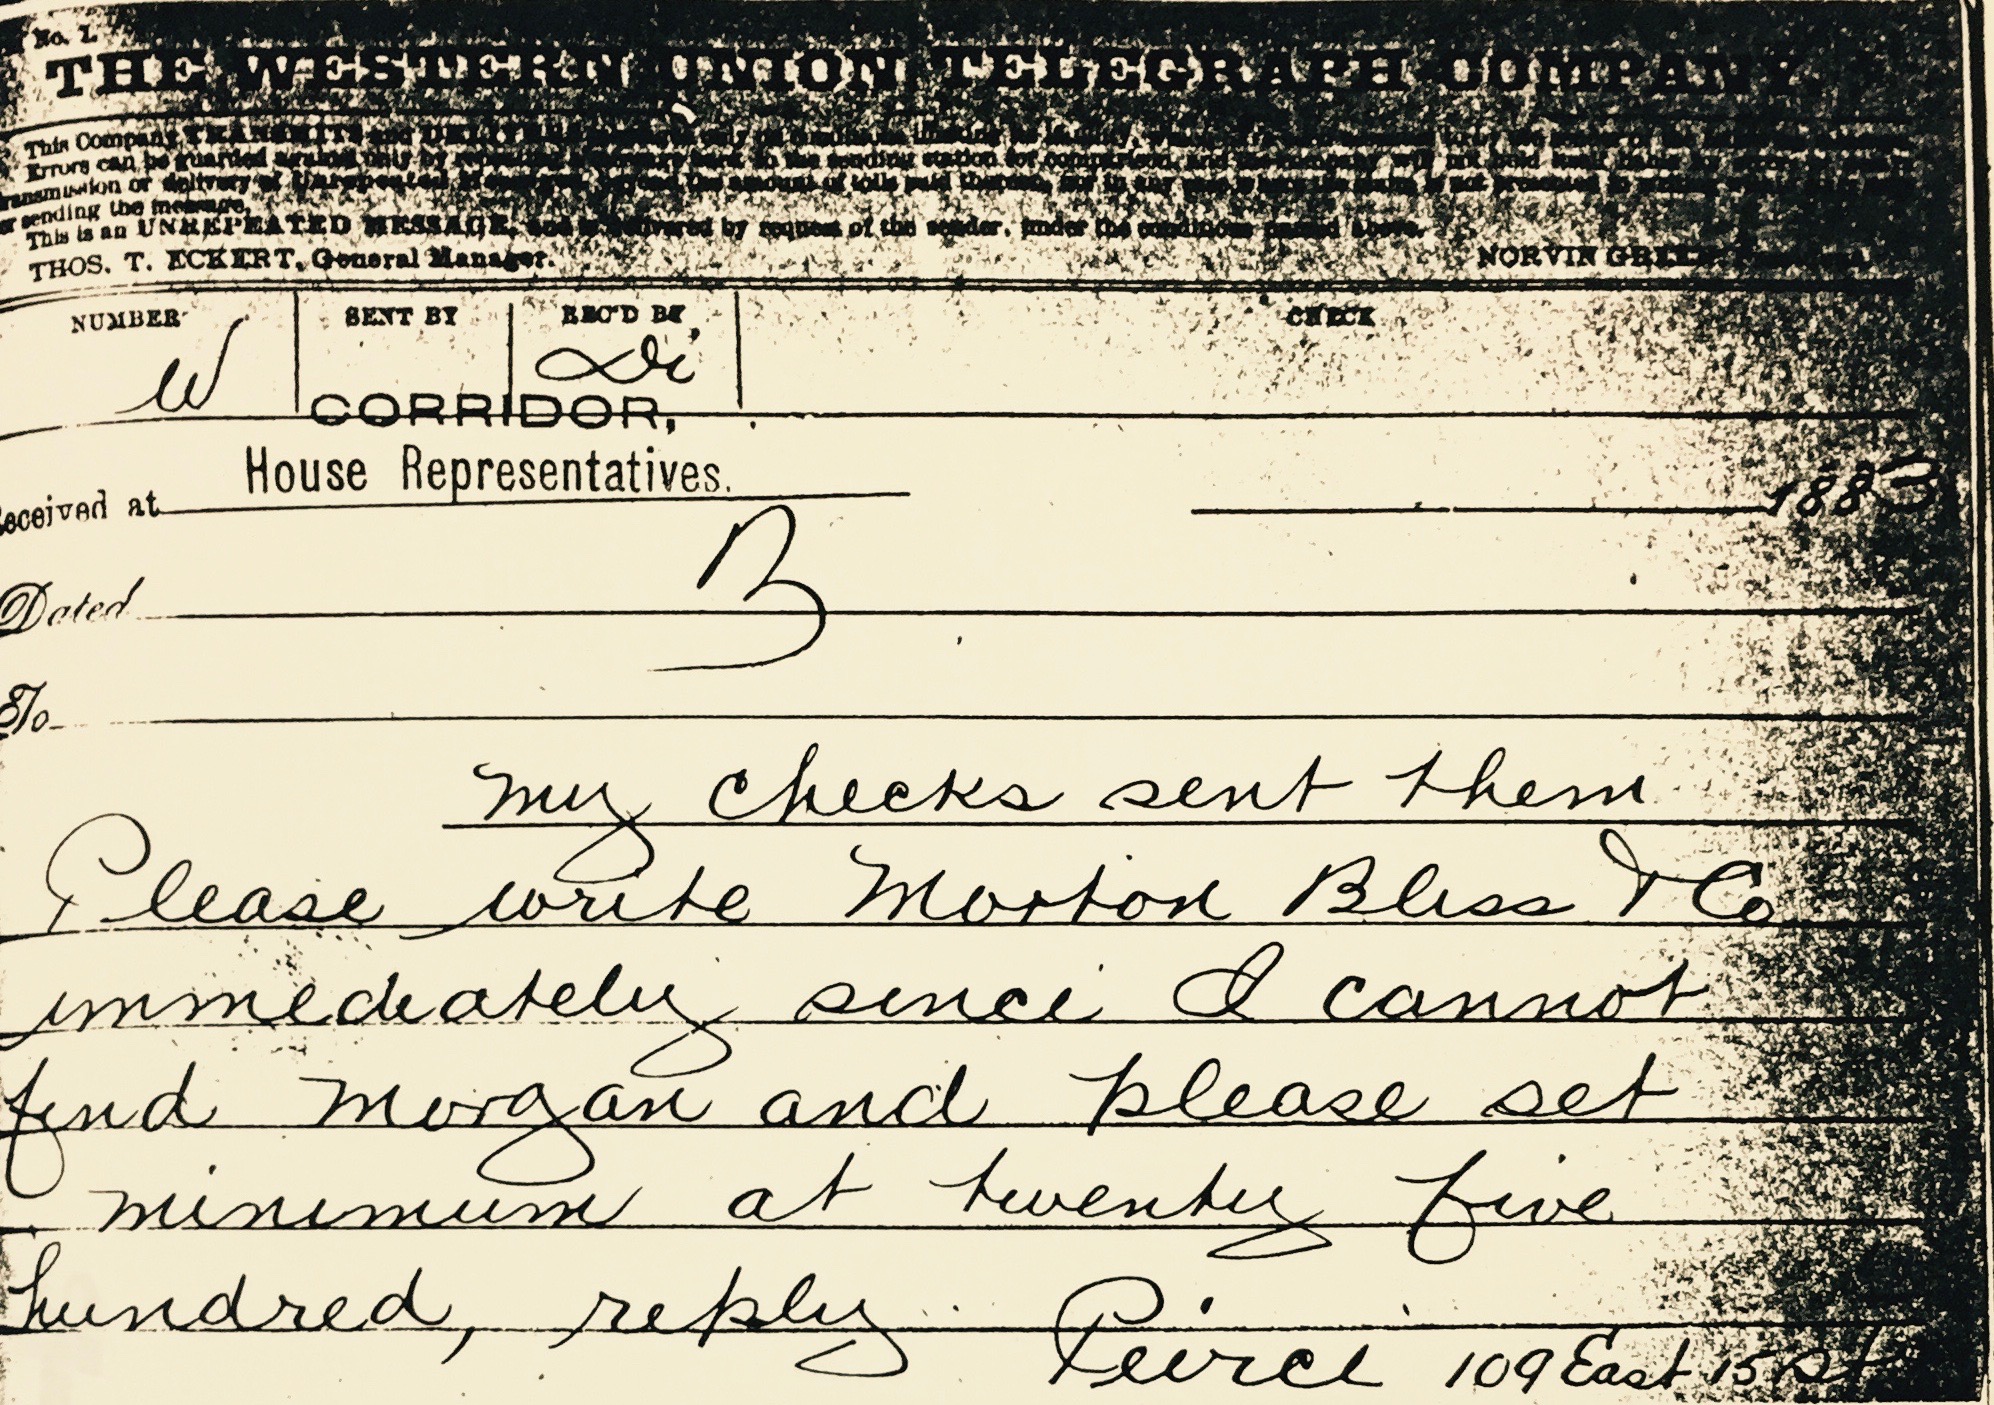 No. 1.
THE WESTERN UNION TELEGRAPH COMPANY.
This Company TRANSMITS and DELIVERS
Errors can be guarded against only by repeating a message back to the sending station for comparison, and the company will not hold itself liable for
transmission or delivery of Unrepeated Messages, beyond the amount of tolls paid thereon, nor in any case where the claim is not presented in writing
sending the message.
This is an UNREPEATED MESSAGE, and is delivered by request of the sender, under the conditions named above.
THOS. T. ECKERT, General Manager. NORVIN GREEN,
NUMBER SENT BY REC'D BY CHECK
W
CORRIDOR,
House Representatives.
Received at 1883
B
Dated
To
my checks sent them
Please write Morton Bliss & Co
immediately since I cannot
find Morgan and please set
minimum at twenty five
hundred, reply Peirce 109 East 15 St